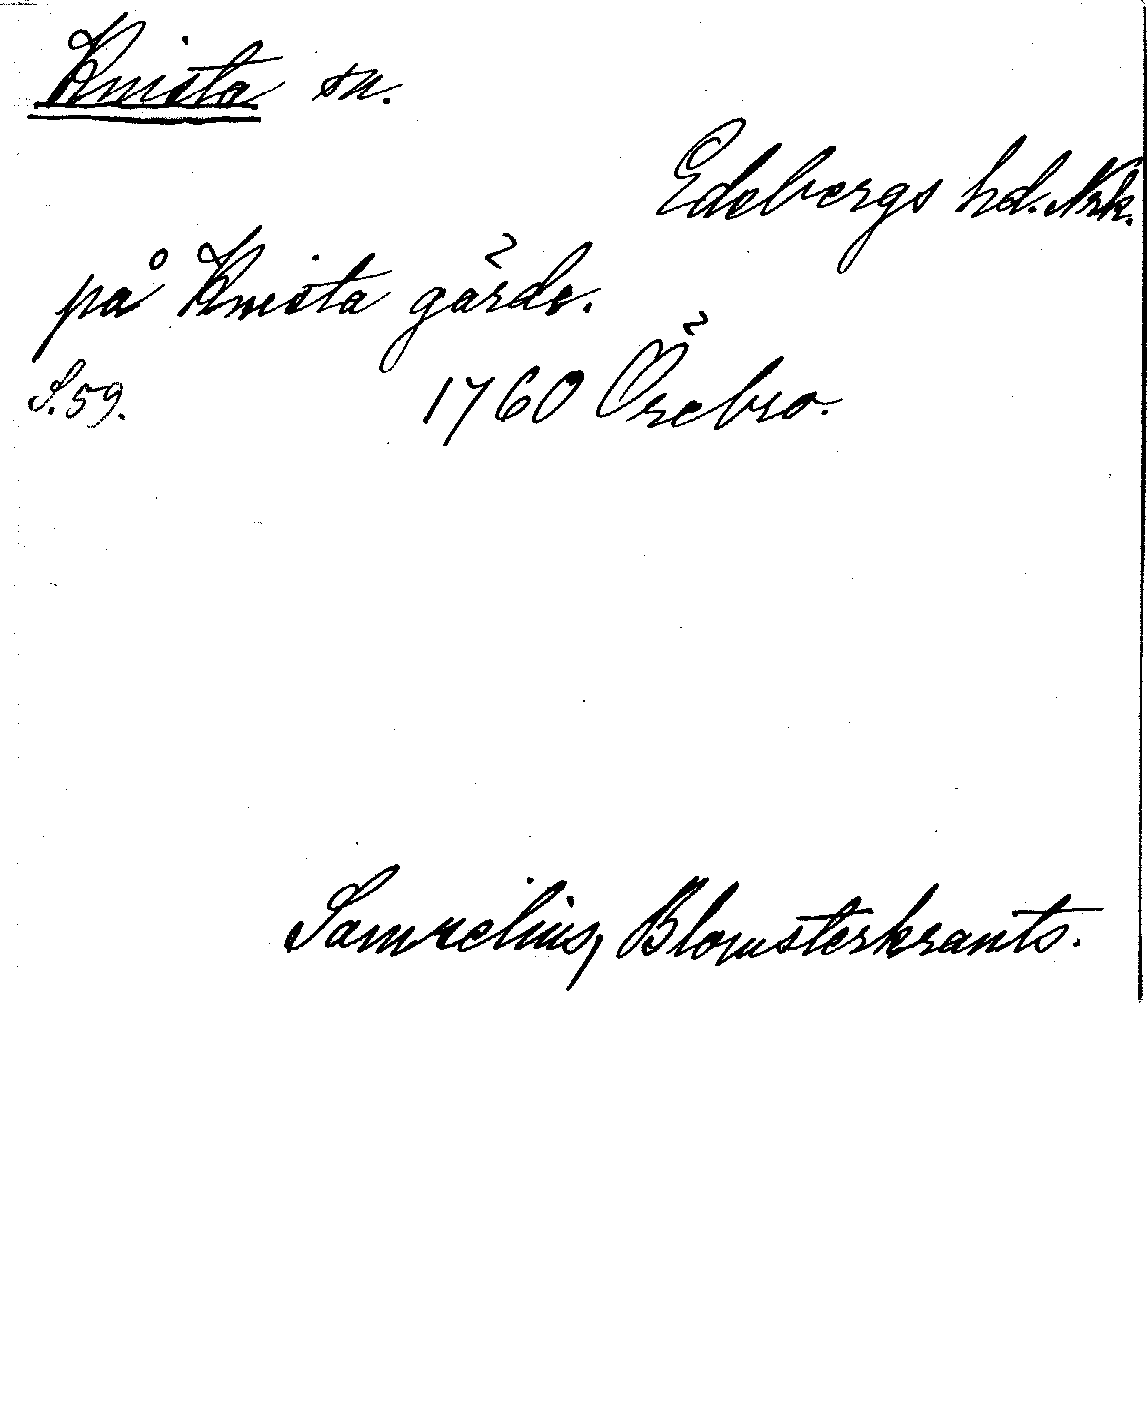 Knista sn.
Edebergs hd. Nrk.
på Knista gärde.
S. 59. 1760 Örebro.
Samzelius, Blomsterkrants.